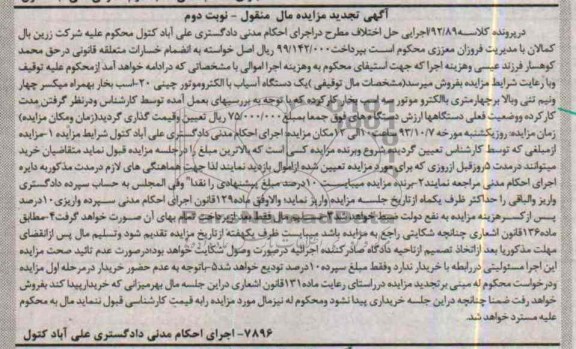 آگهی تجدید مزایده مال منقول - نوبت دوم
درپرونده کلاسه ۹۲/۸۹/اجرایی حل اختلاف مطرح دراجرای احکام مدنی دادگستری علی آباد کتول محکوم علیه شرکت زرین بال
کمالان با مدیریت فروزان معززی محکوم است بپرداخت ۹۹/۱۴۲/۰۰۰ ریال اصل خواسته به انضمام خسارات متعلقه قانونی درحق محمد
کوهسار فرزند عیسی وهزینه اجرا که جهت استیفای محکوم به وهزینه اجرا اموالی با مشخصاتی که درادامه خواهد آمد ازمحکوم علیه توقیف
وبا رعایت شرایط مزایده بفروش میرسد(مشخصات مال توقیفی )یک دستگاه آسیاب با الکتروموتور چینی ۲۰-اسب بخار بهمراه میکسر چهار
ونیم تنی وبالا برچهارمتری باالکترو موتور کارکرده که با توجه به بررسیهای بعمل آمده توسط کارشناس ودرنظر گرفتن مدت
کارکرده ووضعیت فعلی دستگاهها ارزش دستگاه های فوق جمعا بمبلغ ۷۵/۰۰۰/۰۰۰ ریال تعیین وقیمت گذاری گردید(زمان ومکان مزایده)
زمان مزایده: روزیکشنبه مورخه ۹۳/۱۰/۷ ۱۲ مکان مزایده اجرای احکام مدنی دادگستری علی آباد کتول شرایط مزایده ۱-مزایده
ازمبلغی که توسط کارشناس تعیین گردیده شروع وبرنده مزایده کسی است که بالاترین مبلغ را درجلسه مزایده قبول نماید متقاضیان خرید
میتوانند درمدت ۵روزقبل ازروزی که برای مورد مزایده تعیین شده ازاموال بازدید نمایند لذا جهت هماهنگی های لازم درمدت مذکوربه دایره
اجرای احکام مدنی مراجعه نمایند۲-برنده مزایده میبایست ۱۰درصد مبلغ پیشنهادی را نقدا" وفی المجلس به حساب سپرده دادگستری
واریز والباقی را حداکثر ظرف یکماه ازتاریخ جلسه مزایده واریز نماید؛ والاوفق ماده۱۲۹قانون اجرای احکام مدنی سپرده واریزی۱۰درصد
پس از کسرهزینه مزایده به نفع دولت ضبط خواهد شد۳- فقط بعد ازپرداخت تمام بهای آن صورت خواهد گرفت۴-مطابق
ماده۱۳۶قانون اشعاری چنانچه شکایتی راجع به مزایده باشد میبایست ظرف یکهفته ازتاریخ مزایده تقدیم شود وتسلیم مال پس ازانقضای
مهلت مذکوریا بعد ازاتخاذ تصمیم ازناحیه دادگاه صادرکننده اجرائیه درصورت وصول شکایت خواهد بود؛درصورت عدم تائید صحت مزایده
این اجرا مسئولیتی دررابطه با خریدار ندارد وفقط مبلغ سپرده۱۰درصد تودیع خواهد شد۵-باتوجه به عدم حضور خریدار درمرحله اول مزایده
ودرخواست محکوم له مبنی برتجدید مزایده درراستای رعایت ماده۱۳۱قانون اشعاری دراین جلسه مال بهرمیزانی که خریدارپیدا کند بفروش
خواهد رفت ضمنا چنانچه دراین جلسه خریداری پیدا نشود ومحکوم له نیزمال مورد مزایده رابه قیمت کارشناسی قبول ننماید مال به محکوم
علیه مسترد خواهد شد.
۷۸۹۶- اجرای احکام مدنی دادگستری علی آباد کتول